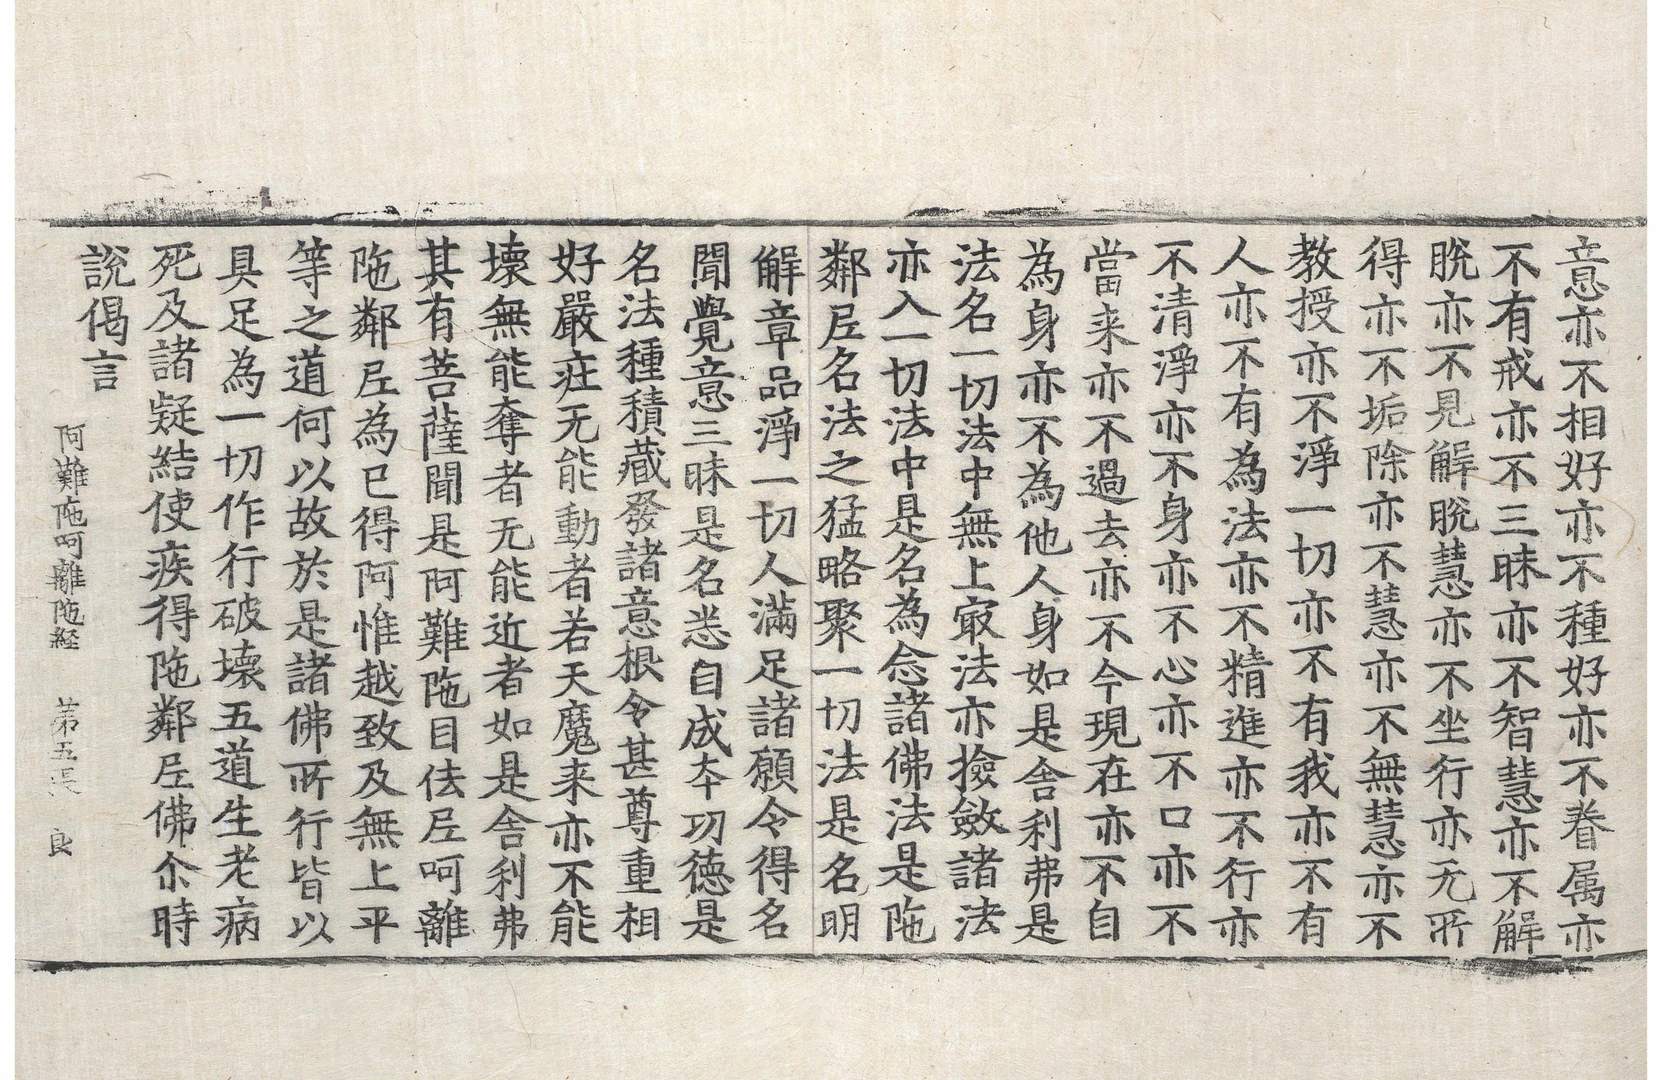 意亦不相好亦不種好亦不眷属亦
不有戒亦不三昧亦不智慧亦不解
脫亦不見解脫慧亦不坐行亦无所
得亦不垢除亦不慧亦不無慧亦不
教授亦不淨一切亦不有我亦不有
人亦不有為法亦不精進亦不行亦
不清淨亦不身亦不心亦不口亦不
當来亦不過去亦不今現在亦不自
為身亦不為他人身如是舍利弗是
法名一切法中無上㝡法亦撿斂諸法
亦入一切法中是名為念諸佛法是陁
鄰尼名法之猛略聚一切法是名明
解章品淨一切人滿足諸願令得名
聞覺意三昧是名悉自成夲功德是
名法種積藏發諸意根令甚尊重相
好嚴疘无能動者若天魔来亦不能
壞無能奪者无能近者如是舍利弗
其有菩薩聞是阿難陁目佉尼呵離
陁鄰尼為已得阿惟越致及無上平
等之道何以故於是諸佛所行皆以
具足為一切作行破壞五道生老病
死及諸疑結使疾得陁鄰尼佛尒時
說偈言
阿難陁呵離陁経 第五張 良